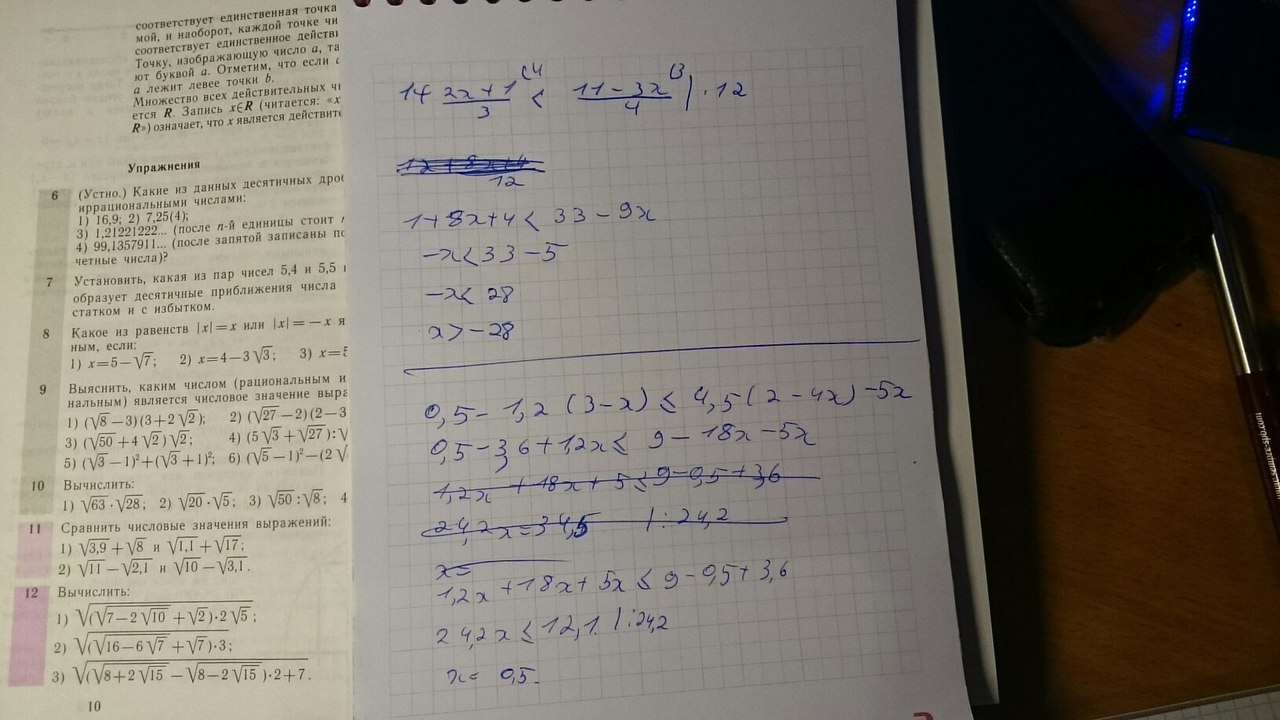 соответствует единственная точка
мой, и наоборот, каждой точке
соответствует единственное
Точку, изображающую число a,
ют буквой a. Отметим, что если
a лежит левее точки b.
Множество всех действительных
ется R. Запись x∈R (читается: «x
R») означает, что x является
Упражнения
6 (Устно.) Какие из данных десятичных
иррациональными числами:
1) 16,9; 2) 7,25(4);
3) 1,21221222... (после n-й единицы стоит
4) 99,1357911... (после запятой записаны
четные числа)?
7 Установить, какая из пар чисел 5,4 и 5,5
образует десятичные приближения числа
статком и с избытком.
8 Какое из равенств |x|=x или |x|=−x
ным, если:
1) x=5−√7; 2) x=4−3√3; 3)
9 Выяснить, каким числом (рациональным
нальным) является числовое значение
1) (√8−3)(3+2√2); 2) (√27−2)(2−3
3) (√50+4√2)√2; 4) (5√3+√27):√
5) (√3−1)²+(√3+1)²; 6) (√5−1)²−(2√
10 Вычислить:
1) √63·√28; 2) √20·√5; 3) √50:√8; 4
11 Сравнить числовые значения выражений:
1) √3,9+√8 и √1,1+√17;
2) √11−√2,1 и √10−√3,1.
12 Вычислить:
1) √((√(7−2√10)+√2)·2√5);
2) √((√(16−6√7)+√7)·3);
3) √((√(8+2√15)−√(8−2√15))·2+7).
10
1+ (2x+1)/3 (4 < (11−3x)/4 (3 | ·12
12
1+8x+4<33−9x
−x<33−5
−x<28
x>−28
0,5−1,2(3−x)≤4,5(2−4x)−5x
0,5−3,6+1,2x≤9−18x−5x
1,2x+18x+5≤9−0,5+3,6
24,2x=34,5 |:24,2
x=
1,2x+18x+5x≤9−0,5+3,6
24,2x≤12,1 |:24,2
x=0,5.